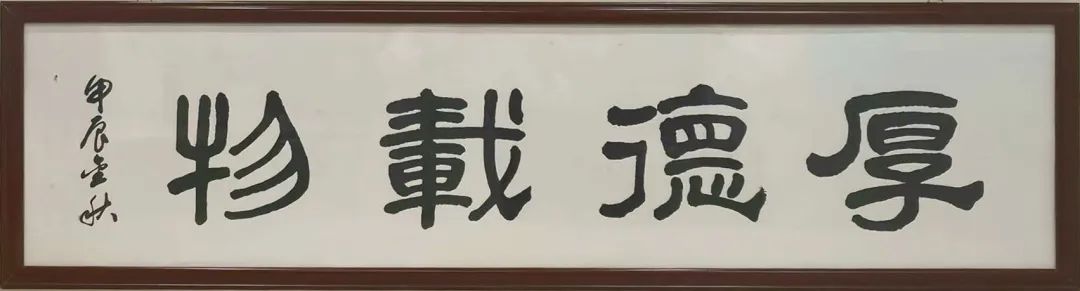 厚德載物
甲辰金秋